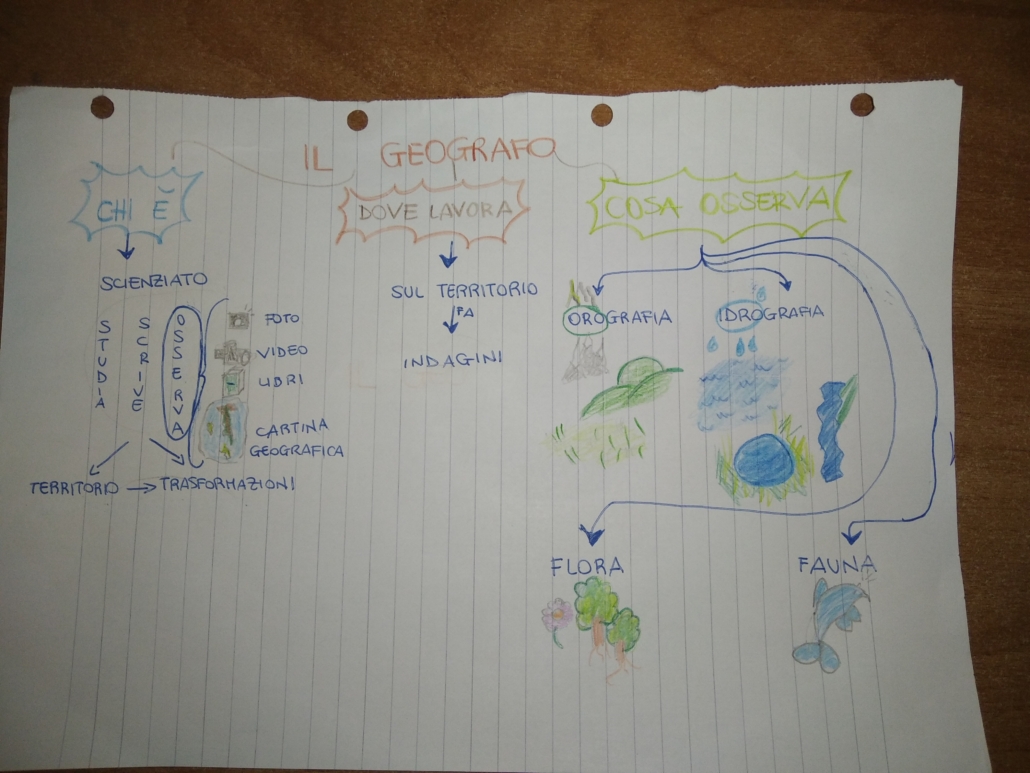 IL GEOGRAFO
CHI È
DOVE LAVORA
COSA OSSERVA
SCIENZIATO
STUDIA
SCRIVE
OSSERVA
FOTO
VIDEO
LIBRI
CARTINA
GEOGRAFICA
TERRITORIO
TRASFORMAZIONI
SUL TERRITORIO
FA
INDAGINI
OROGRAFIA
IDROGRAFIA
FLORA
FAUNA